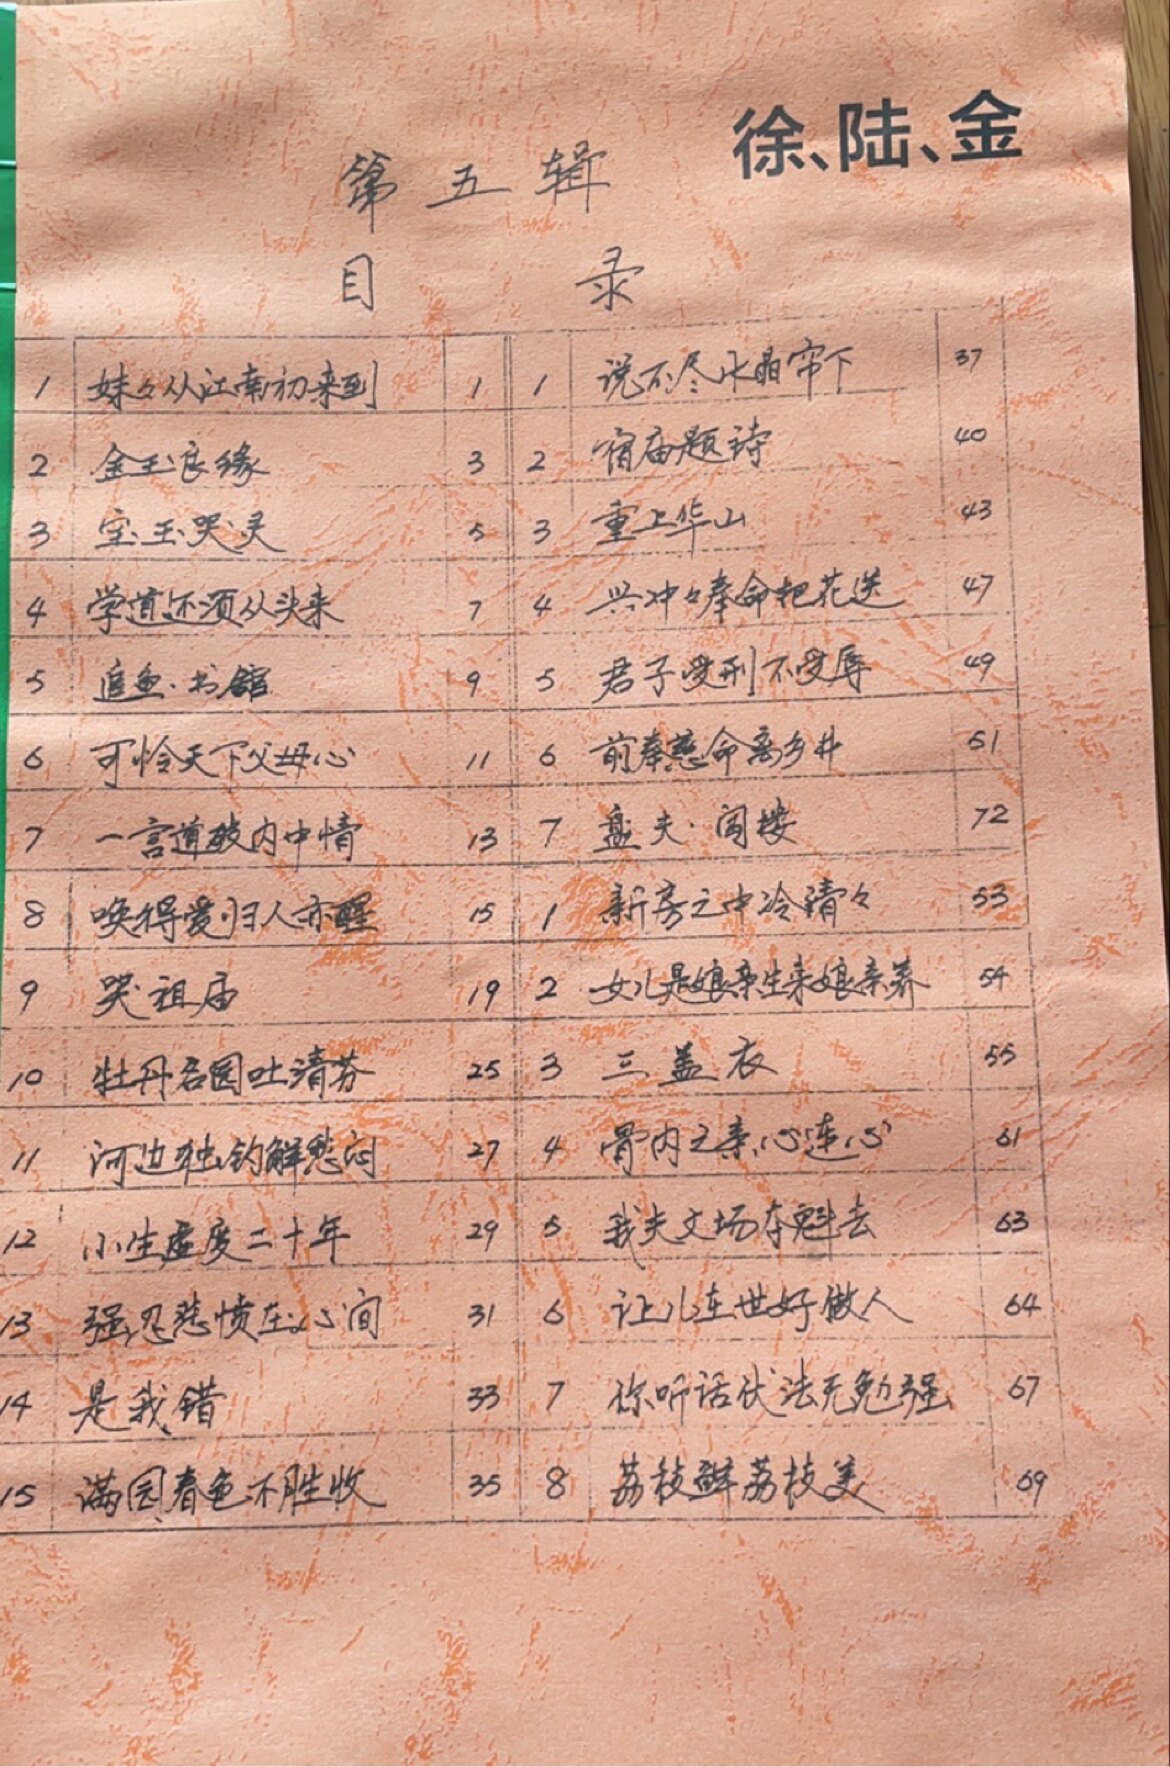 徐、陆、金
第五辑
目录
1 妹々从江南初来到 1 1 说不尽水晶帘下 37
2 金玉良缘 3 2 宿庙题诗 40
3 宝玉哭灵 5 3 重上华山 43
4 学道还须从头来 7 4 兴冲々奉命把花送 47
5 追鱼·书馆 9 5 君子受刑不受辱 49
6 可怜天下父母心 11 6 前奉慈命离乡井 51
7 一言道破内中情 13 7 盘夫·阁楼 72
8 唤得爱归人亦醒 15 1 新房之中冷清々 53
9 哭祖庙 19 2 女儿是娘亲生来娘亲养 54
10 牡丹名园吐清芬 25 3 三盖衣 55
11 河边独钓解愁闷 27 4 骨肉之亲心连心 61
12 小生虚度二十年 29 5 我夫文场夺魁去 63
13 强忍悲愤在心间 31 6 让儿在世好做人 64
14 是我错 33 7 你听话伏法无勉强 67
15 满园春色不胜收 35 8 荔枝鲜荔枝美 69